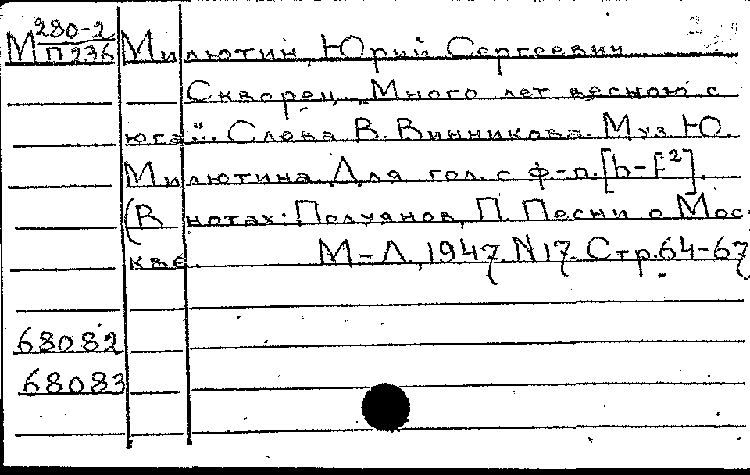 М 280-2 Милютин, Юрий Сергеевич
П236
Скворец. „Много лет весною с
юга...". Слова В. Винникова. Муз. Ю.
Милютина. Для гол. с ф-п. [h-f²].
(В нотах: Полуянов, П. Песни о Мос-
кве. М-Л., 1947. N17. Стр. 64-67
68082
68083